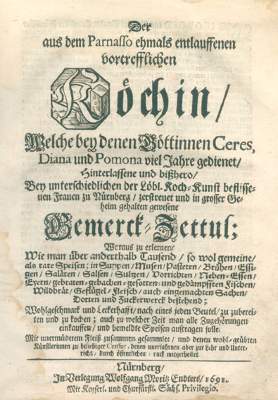 Der
aus dem Parnasso ehmals entlauffenen
vortrefflichen
Köchin/
Welche bey denen Göttinnen Ceres,
Diana und Pomona viel Jahre gedienet/
Hinterlassene und bißhero/
Bey unterschiedlichen der Löbl. Koch-Kunst beflisse-
nen Frauen zu Nürnberg/ zerstreuet und in grosser Ge-
heim gehalten gewesene
Gemerck-Zettul;
Woraus zu erlernen/
Wie man über anderthalb Tausend/ so wol gemeine/
als rare Speisen; in Suppen/ Musen/ Pasteten/ Brühen/ Essi-
gen/ Salaten/ Salsen/ Sultzen/ Vorrichten/ Neben-Essen/
Eyern/ gebraten- gebachen- gesotten- und gedämpfften Fischen/
Wildprät/ Geflügel/ Fleisch/ auch eingemachten Sachen/
Dorten und Zuckerwerck bestehend;
Wohlgeschmack und Leckerhafft/ nach eines jeden Beutel/ zu zuberei-
ten und zu kochen; auch zu welcher Zeit man alle Zugehörungen
einkauffen/ und bemeldte Speisen auftragen solle.
Mit unermüdetem Fleiß zusammen gesammlet/ und denen wohl-geübten
Künstlerinnen zu beliebiger Censur, denen unerfahrnen aber zur Lehr und Unter-
richt/ durch öffentlichen Druck mitgetheilet
Nürnberg/
In Verlegung Wolfgang Moritz Endters/ 1691.
Mit Keyserl. und Churfürstl. Sächs. Privilegio.